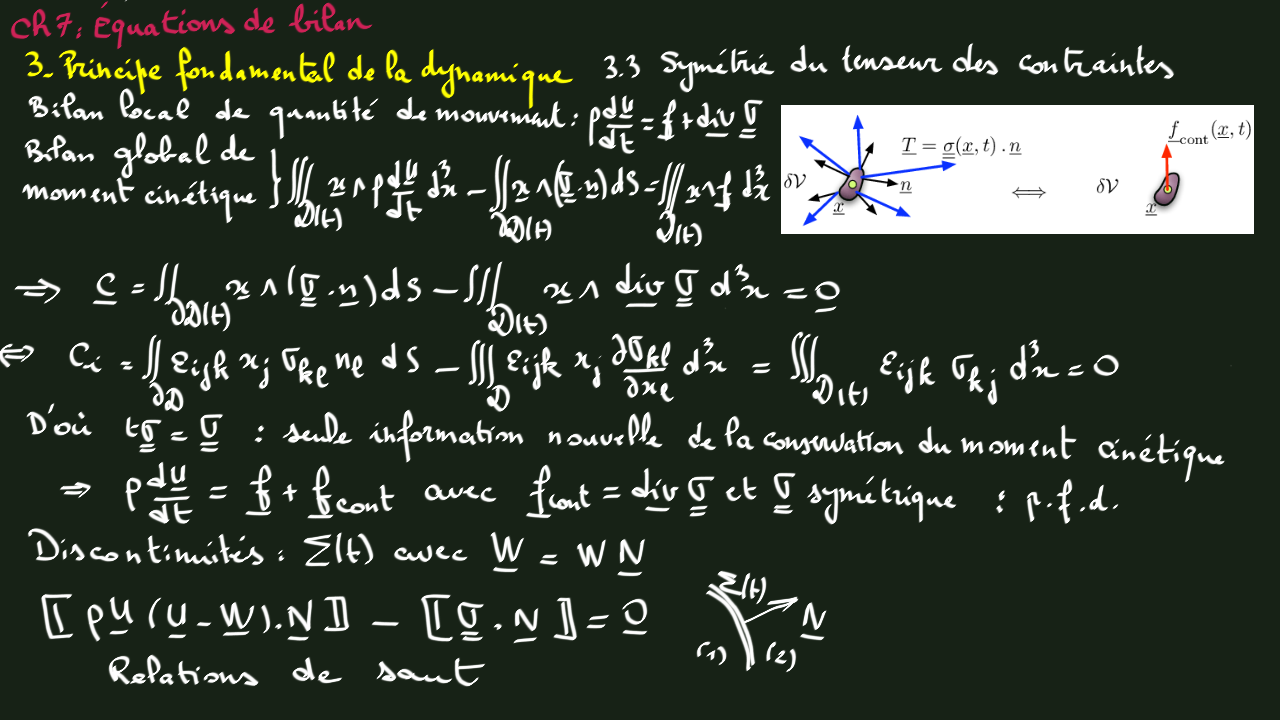 Ch 7: Équations de bilan
3_ Principe fondamental de la dynamique 3.3 Symétrie du tenseur des contraintes
Bilan local de quantité de mouvement : ρ dU/dt = f + div σ
Bilan global de moment cinétique } ∭_D(t) x ∧ ρ dU/dt d³x − ∬_∂D(t) x ∧ (σ · n) dS = ∭_D(t) x ∧ f d³x
T = σ(x, t) . n
δV
n
x
⟺
δV
f_cont(x, t)
x
⇒ C = ∬_∂D(t) x ∧ (σ · n) dS − ∭_D(t) x ∧ div σ d³x = 0
⇔ C_i = ∬_∂D ε_ijk x_j σ_kl n_l dS − ∭_D ε_ijk x_j ∂σ_kl/∂x_l d³x = ∭_D(t) ε_ijk σ_kj d³x = 0
D'où ᵗσ = σ : seule information nouvelle de la conservation du moment cinétique
⇒ ρ dU/dt = f + f_cont avec f_cont = div σ et σ symétrique : p.f.d.
Discontinuités : Σ(t) avec W = W N
⟦ρU (U − W).N⟧ − ⟦σ . N⟧ = 0
Σ(t)
N
(1) (2)
Relations de saut